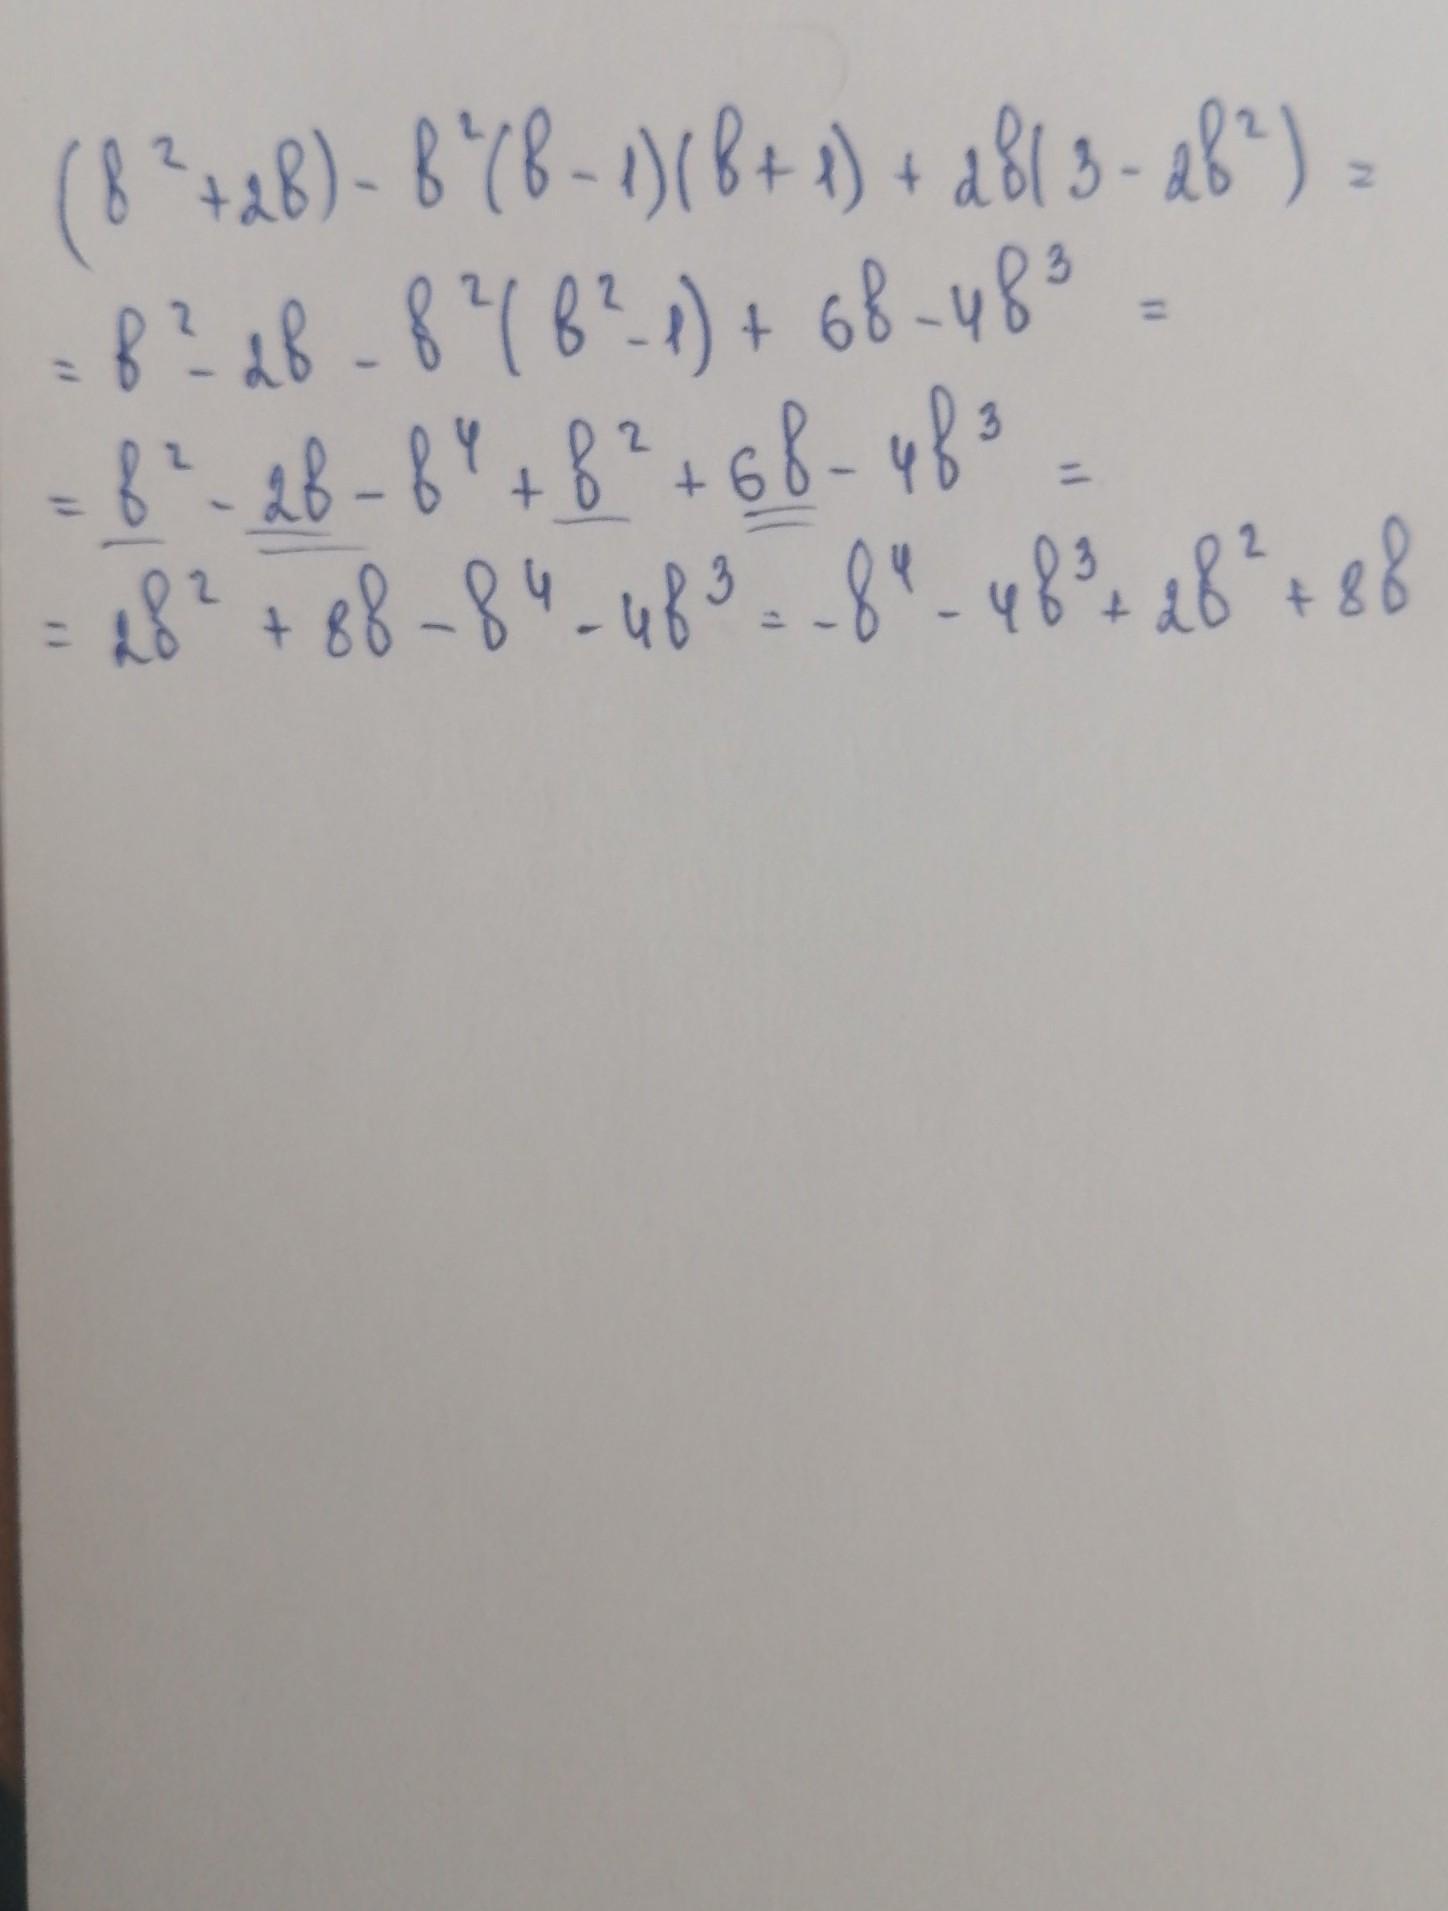 (b² + 2b) - b²(b - 1)(b + 1) + 2b(3 - 2b²) =
= b² - 2b - b²(b² - 1) + 6b - 4b³ =
= b² - 2b - b⁴ + b² + 6b - 4b³ =
= 2b² + 8b - b⁴ - 4b³ = -b⁴ - 4b³ + 2b² + 8b